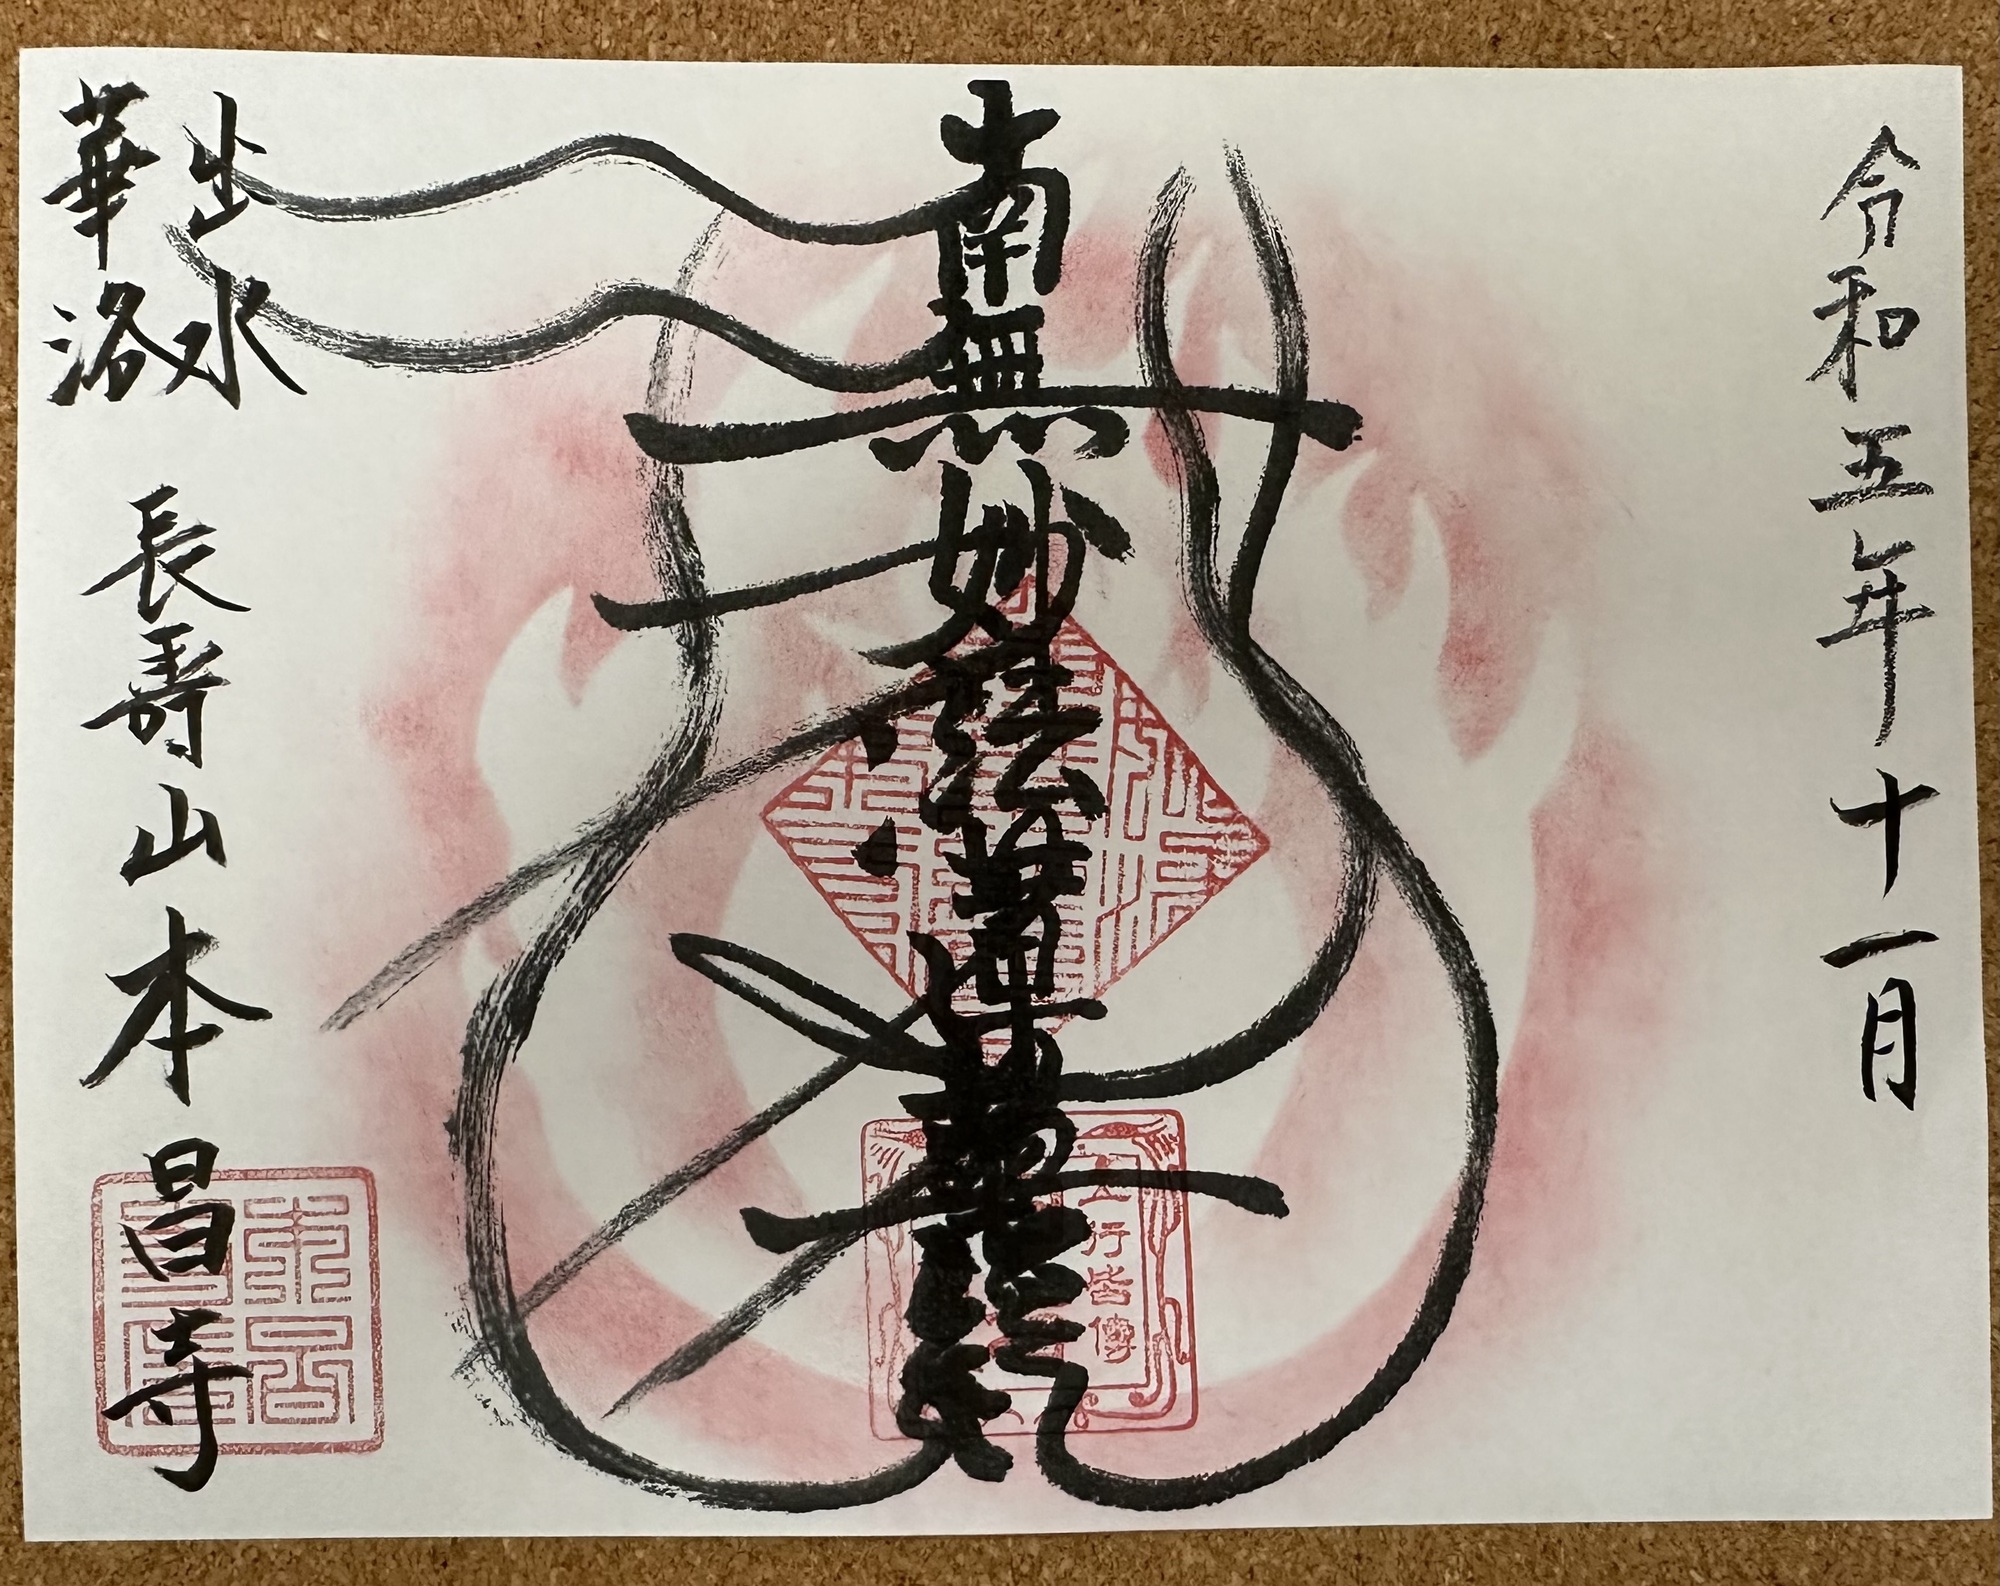 令和五年十一月
南無妙法蓮華経
五行皆傳
出水
華洛
長寿山本昌寺